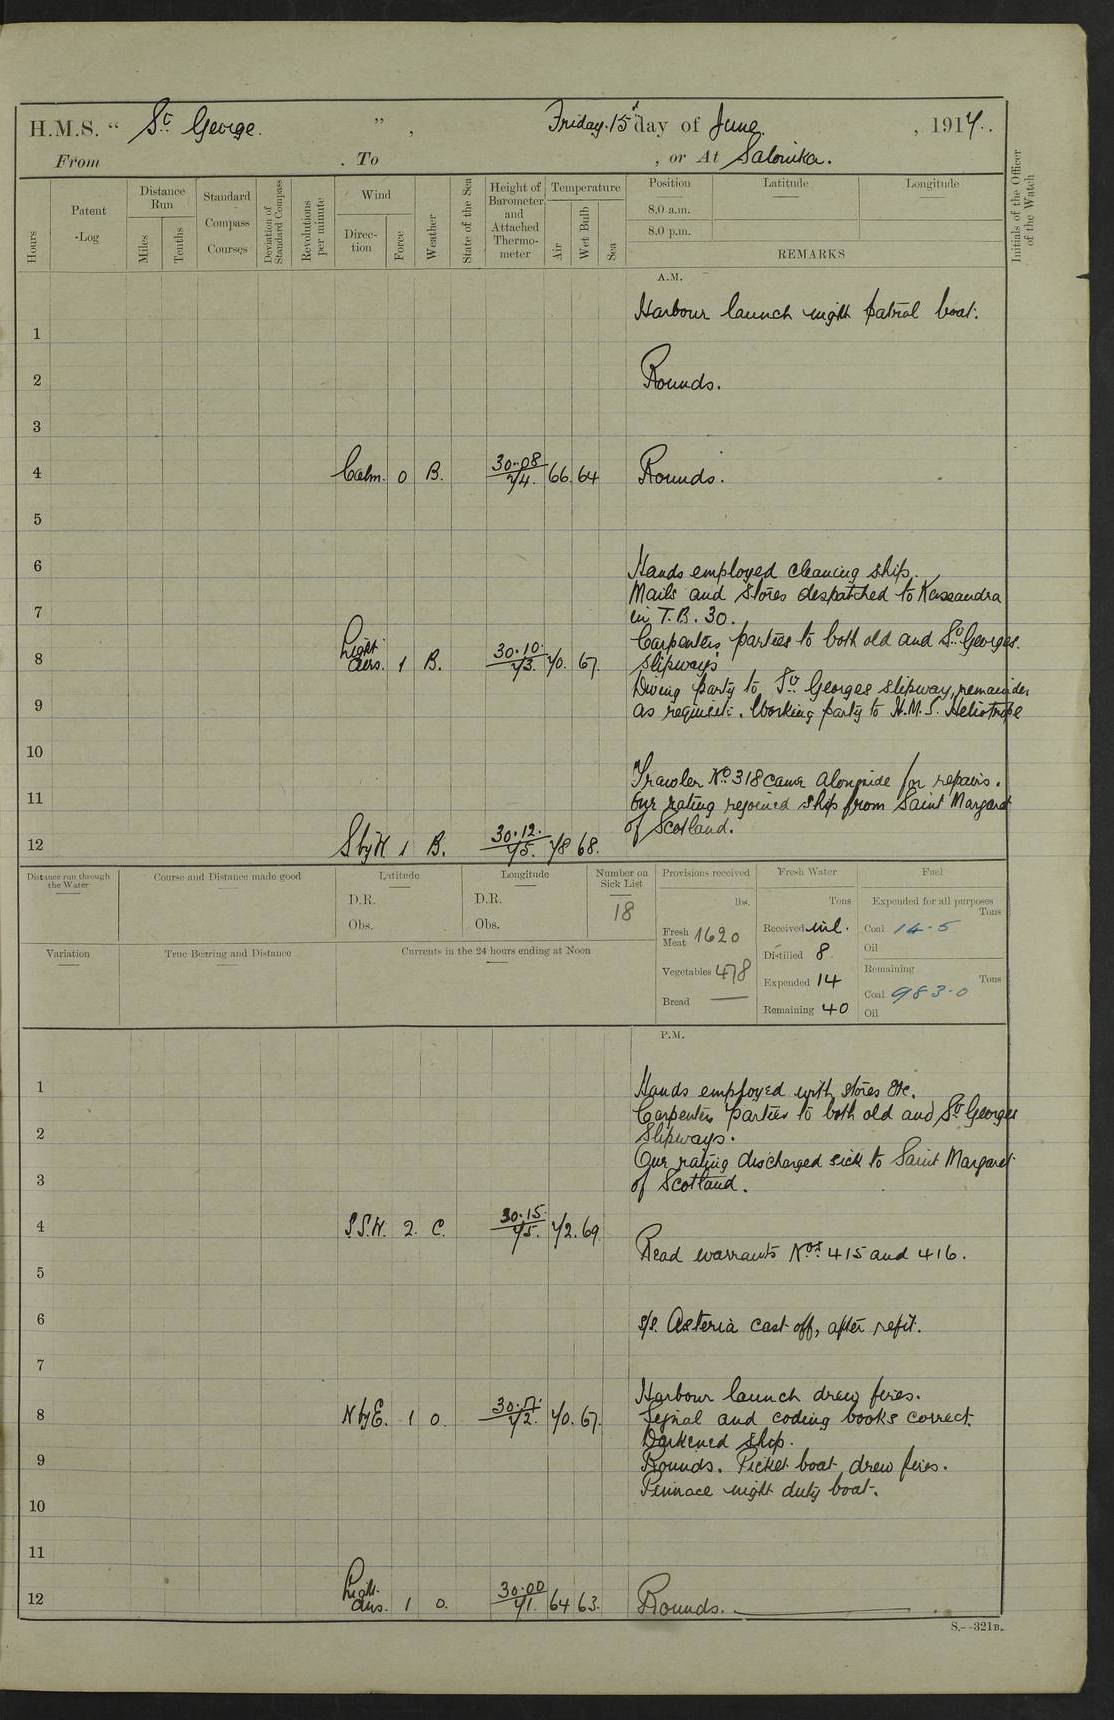 H.M.S. " St George. ", Friday. 15th day of June. , 1917.
From . To , or At Salonika.
Hours
Patent
-Log
Distance
Run
Miles
Tenths
Standard
Compass
Courses
Deviation of
Standard Compass
Revolutions
per minute
Wind
Direc-
tion
Force
Weather
State of the Sea
Height of
Barometer
and
Attached
Thermo-
meter
Temperature
Air
Wet Bulb
Sea
Position
8.0 a.m.
8.0 p.m.
Latitude
Longitude
REMARKS
Initials of the Officer
of the Watch
A.M.
Harbour launch night patrol boat.
1
2 Rounds.
3
4 Calm. 0 B. 30.08 74. 66. 64 Rounds.
5
6 Hands employed cleaning ship.
Mails and Stores despatched to Kassandra
7 in T.B. 30.
Carpenters parties to both old and St Georges.
8 Light airs. 1 B. 30.10. 73. 70. 67. slipways
Diving party to St Georges slipway, remainder
9 as requisite. Working party to H.M.S. Heliotrope
10
Trawler No 318 came alongside for repairs.
11 One rating rejoined ship from Saint Margaret
of Scotland.
12 S by W 1 B. 30.12. 75. 78 68.
Distance run through
the Water
Course and Distance made good
Latitude
D.R.
Obs.
Longitude
D.R.
Obs.
Number on
Sick List
18
Provisions received
lbs.
Fresh
Meat 1620
Vegetables 478
Bread —
Fresh Water
Tons
Received nil.
Distilled 8
Expended 14
Remaining 40
Fuel
Expended for all purposes
Tons
Coal 14.5
Oil
Remaining
Tons
Coal 983.0
Oil
Variation
True Bearing and Distance
Currents in the 24 hours ending at Noon
P.M.
1 Hands employed with stores etc.
Carpenters parties to both old and St Georges
2 Slipways.
One rating discharged sick to Saint Margaret
3 of Scotland.
4 S.S.W. 2. C. 30.15. 75. 72. 69.
Read warrants Nos. 415 and 416.
5
6 s/s. Asteria cast off, after refit.
7
Harbour launch drew fires.
8 N by E. 1 0. 30.17. 72. 70. 67. Signal and coding books correct.
Darkened ship.
9 Rounds. Picket boat drew fires.
Pinnace night duty boat.
10
11
12 Light airs. 1 0. 30.00 71. 64 63. Rounds.
S.--321B.